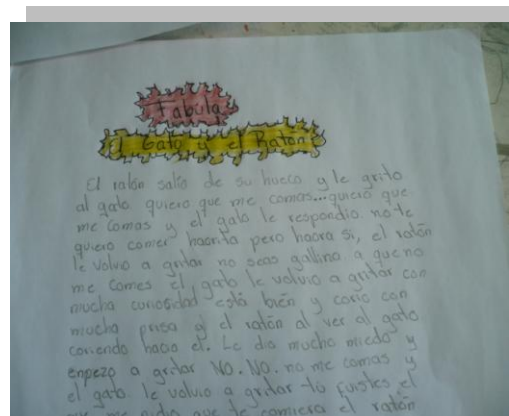 Fabula
El Gato y el Ratón
El ratón salio de su hueco y le grito
al gato quiero que me comas...quiero que
me comas y el gato le respondio no te
quiero comer haorita pero haora si, el ratón
le volvio a gritar no seas gallina a que no
me comes el gato le volvio a gritar con
mucha curiosidad está bién y corio con
mucha prisa y el ratón al ver al gato
coriendo hacia el. Le dio mucho miedo y
enpezo a gritar NO. NO. no me comas y
el gato le volvio a gritar tú fuistes el
que me pidio que te comiera el ratón